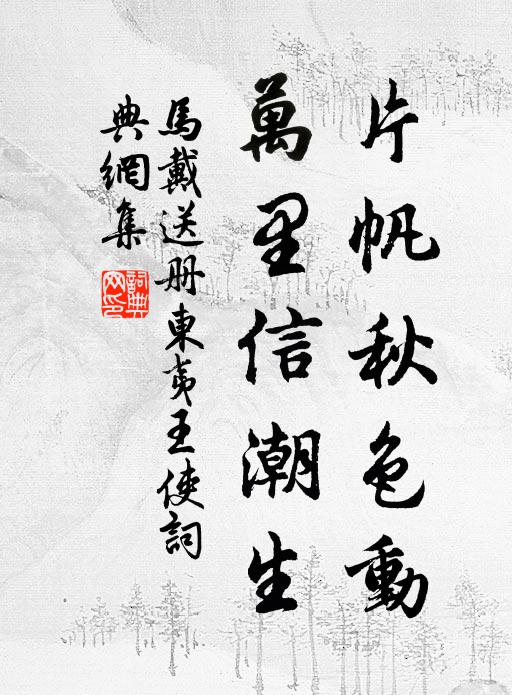 片帆秋色動
萬里信潮生
馬戴送册東夷王使詞
典網集